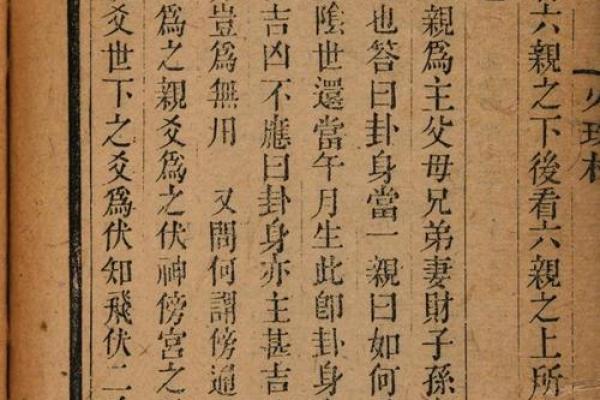 火珠林
六親之下後看六親之上所
親爲主父母兄弟妻財子孫
也答曰卦身當一親曰如何
陰世還當午月生此卽卦身
吉凶不應曰卦身亦主甚吉
豈爲無用　又問何謂傍通
爲之親爻爲之伏神傍宮之
爻世下之爻爲伏知飛伏二